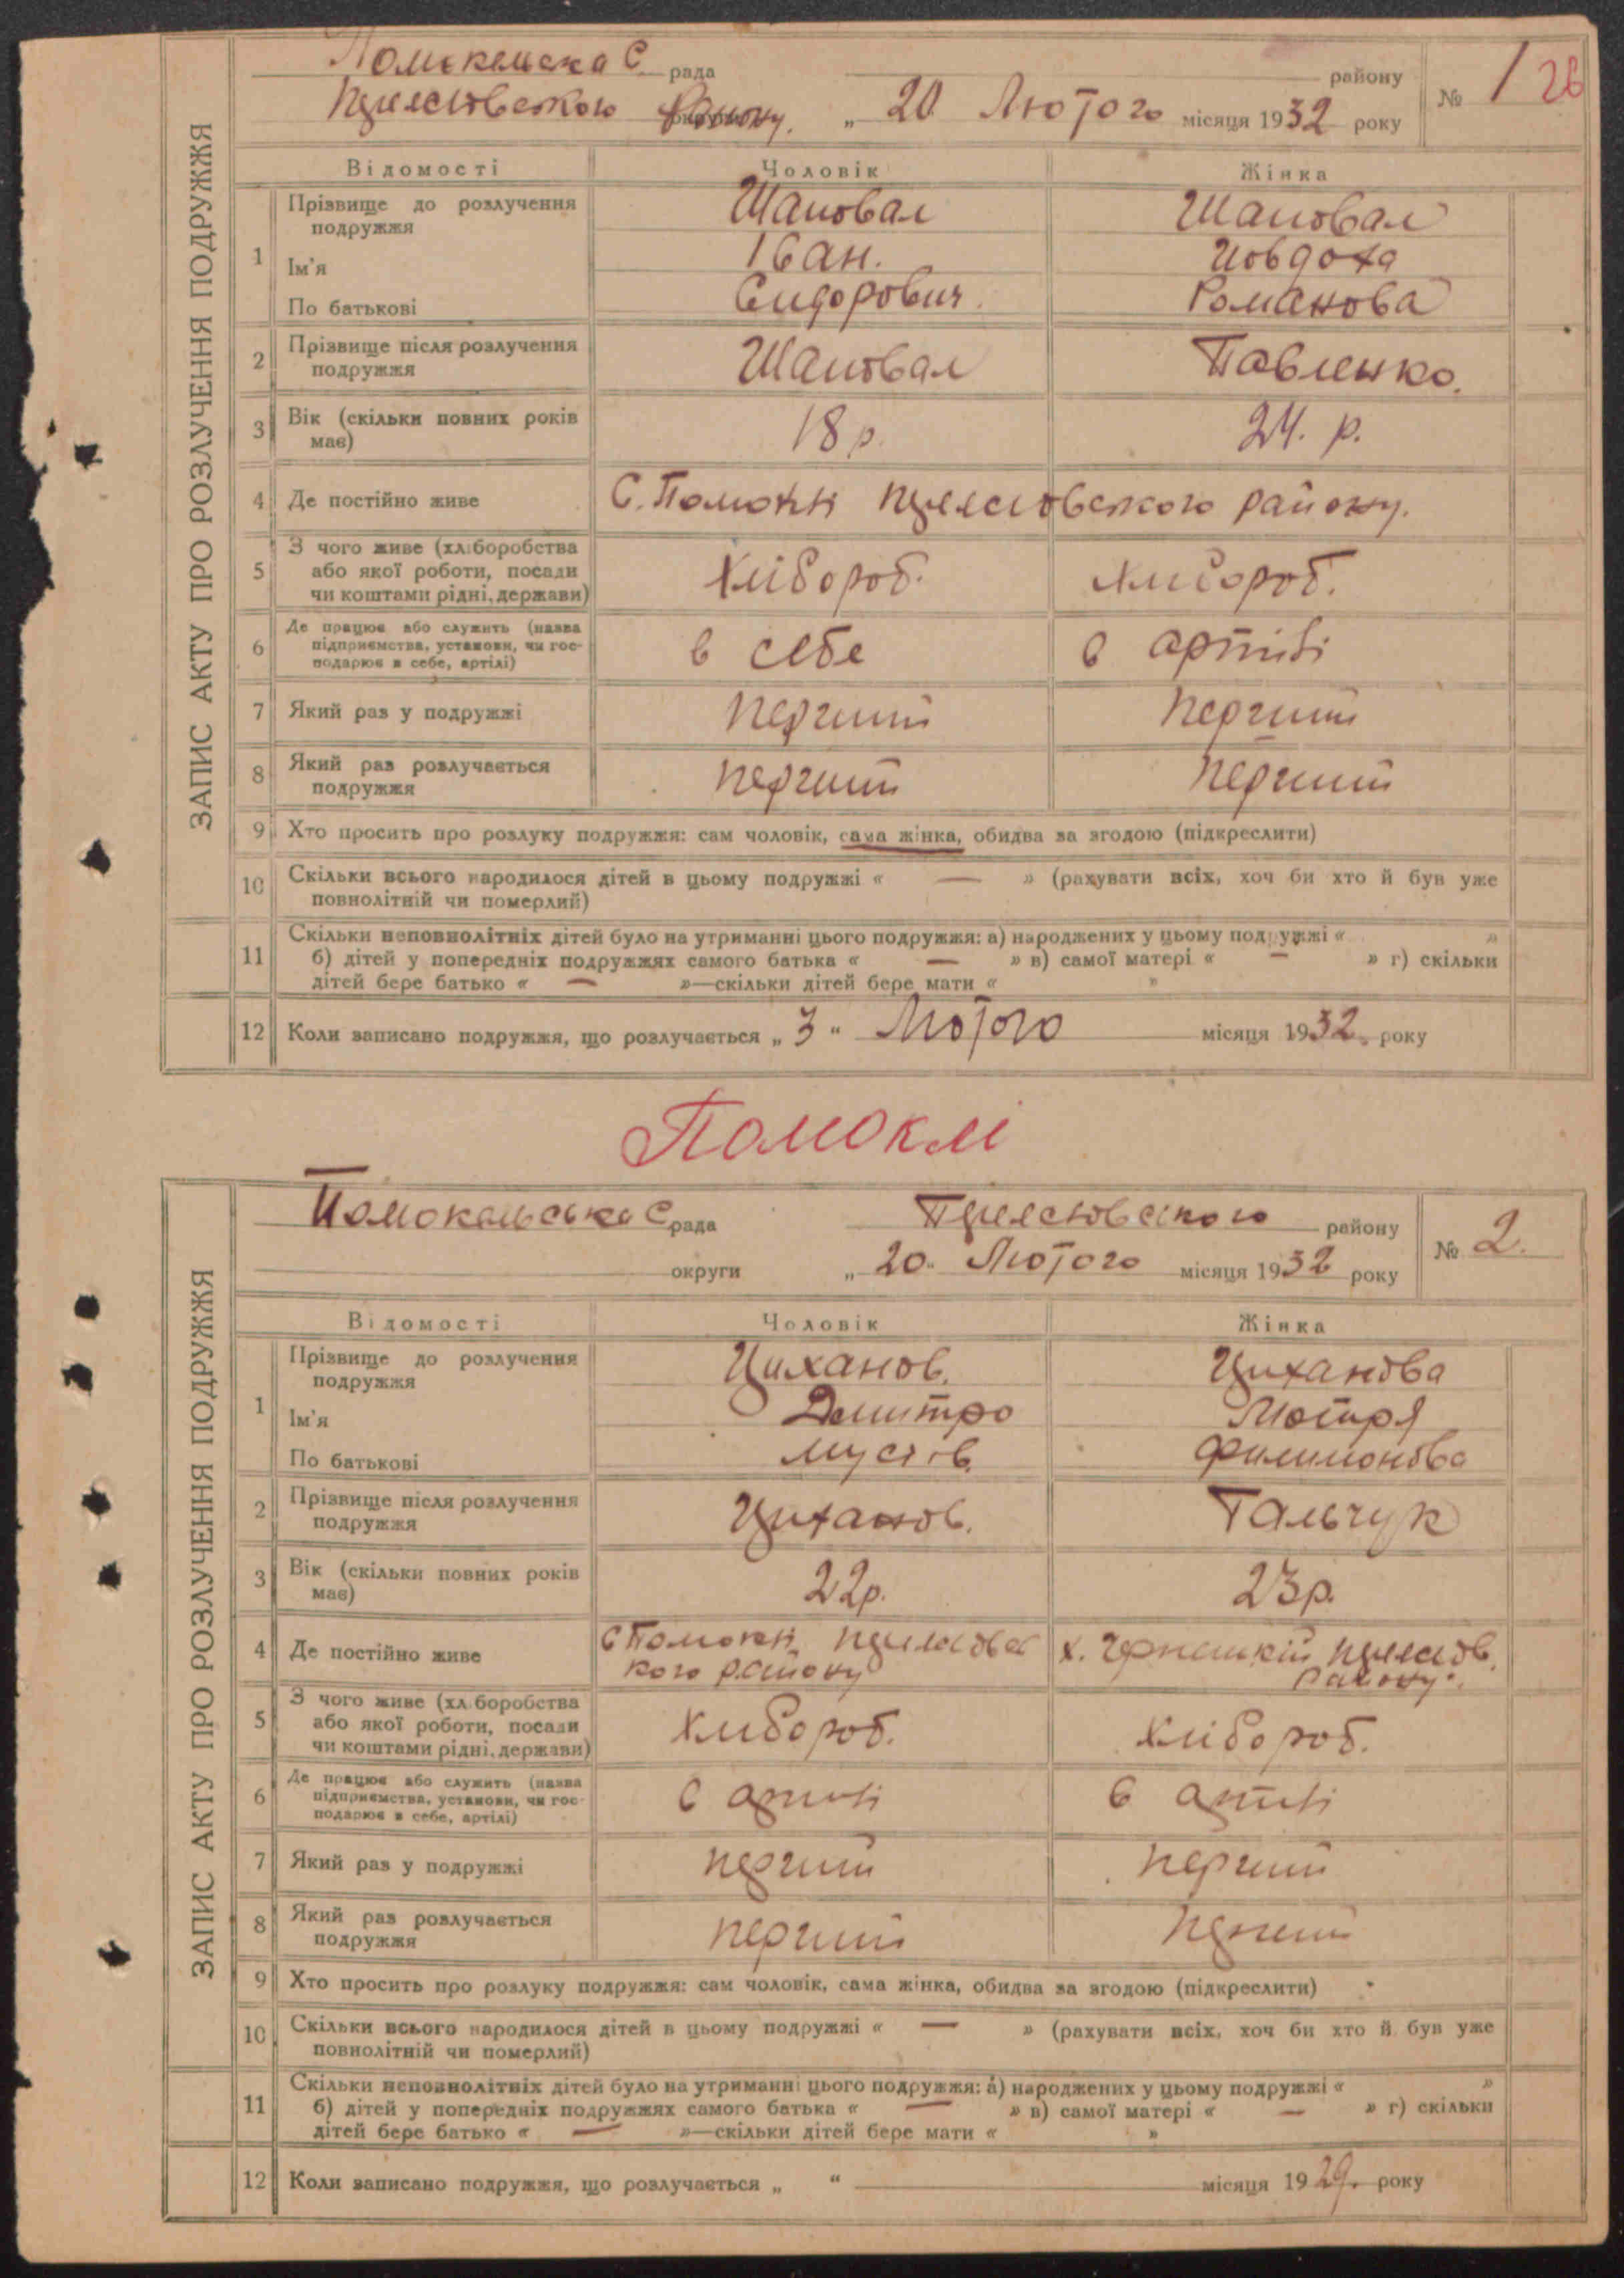 ЗАПИС АКТУ ПРО РОЗЛУЧЕННЯ ПОДРУЖЖЯ
рада
району
№ 1 26
" 20 Лютого місяця 1932 року
Відомості Чоловік Жінка
1 Прізвище до розлучення подружжя Шаповал Шаповал
Ім'я Іван. Йовдоха
По батькові Сидорович. Романова
2 Прізвище після розлучення подружжя Шаповал Павленко.
3 Вік (скільки повних років має) 18 р. 24. р.
4 Де постійно живе С. району.
5 З чого живе (хліборобства або якої роботи, посади чи коштами рідні, держави) Хлібороб. Хлибороб.
6 Де працює або служить (назва підприємства, установи, чи господарює в себе, артілі) в себе в артілі
7 Який раз у подружжі перший перший
8 Який раз розлучається подружжя перший перший
9 Хто просить про розлуку подружжя: сам чоловік, сама жінка, обидва за згодою (підкреслити)
10 Скільки всього народилося дітей в цьому подружжі « — » (рахувати всіх, хоч би хто й був уже
повнолітній чи померлий)
11 Скільки неповнолітніх дітей було на утриманні цього подружжя: а) народжених у цьому подружжі « »
б) дітей у попередніх подружжях самого батька « — » в) самої матері « — » г) скільки
дітей бере батько « — »—скільки дітей бере мати « »
12 Коли записано подружжя, що розлучається „ 3 " Лютого місяця 1932. року
Помоклі
ЗАПИС АКТУ ПРО РОЗЛУЧЕННЯ ПОДРУЖЖЯ
рада району
№ 2.
округи „ 20. Лютого місяця 1932 року
Відомості Чоловік Жінка
1 Прізвище до розлучення подружжя Циханов. Циханова
Ім'я Дмитро Мотря
По батькові Филимонова
2 Прізвище після розлучення подружжя Циханов. Гальчук
3 Вік (скільки повних років має) 22р. 23р.
4 Де постійно живе С кого району х. району.
5 З чого живе (хліборобства або якої роботи, посади чи коштами рідні, держави) Хлибороб. Хлібороб.
6 Де працює або служить (назва підприємства, установи, чи господарює в себе, артілі) в артілі в артілі
7 Який раз у подружжі перший перший
8 Який раз розлучається подружжя перший перший
9 Хто просить про розлуку подружжя: сам чоловік, сама жінка, обидва за згодою (підкреслити)
10 Скільки всього народилося дітей в цьому подружжі « — » (рахувати всіх, хоч би хто й був уже
повнолітній чи померлий)
11 Скільки неповнолітніх дітей було на утриманні цього подружжя: а) народжених у цьому подружжі « »
б) дітей у попередніх подружжях самого батька « — » в) самої матері « — » г) скільки
дітей бере батько « — »—скільки дітей бере мати « »
12 Коли записано подружжя, що розлучається „ " місяця 1929. року